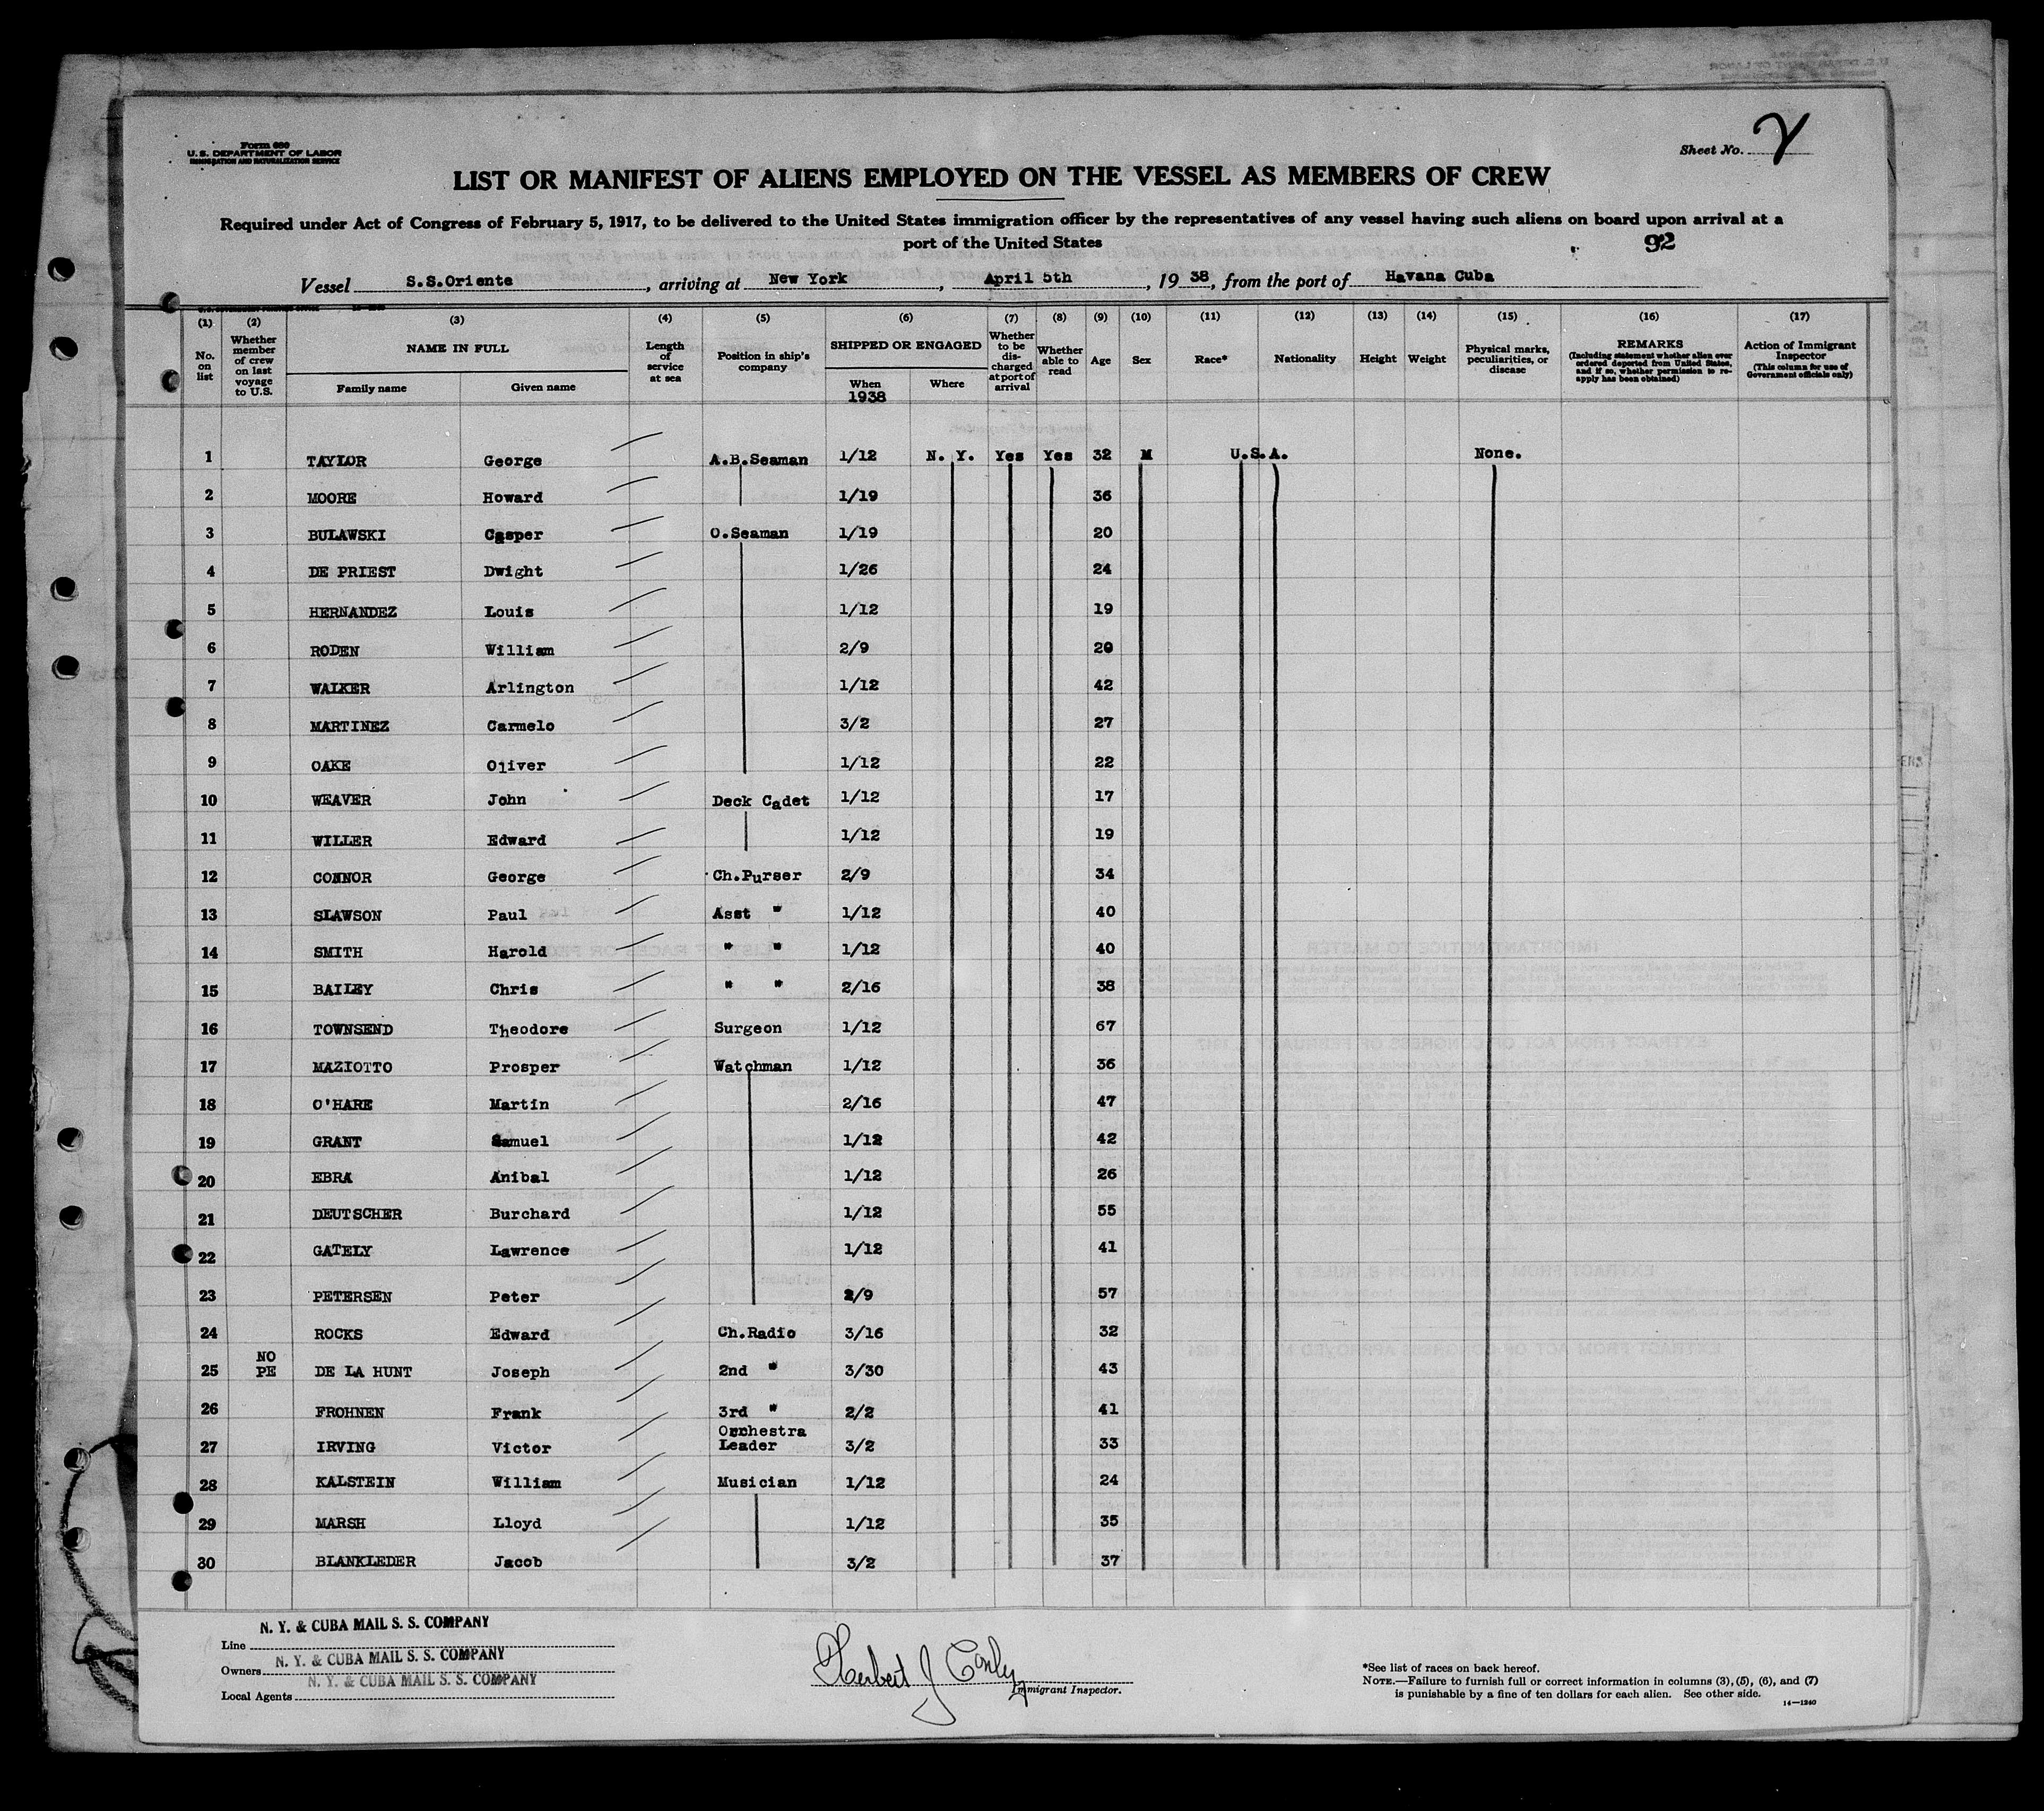 Form 680
U. S. DEPARTMENT OF LABOR
IMMIGRATION AND NATURALIZATION SERVICE
Sheet No. 2
LIST OR MANIFEST OF ALIENS EMPLOYED ON THE VESSEL AS MEMBERS OF CREW
Required under Act of Congress of February 5, 1917, to be delivered to the United States immigration officer by the representatives of any vessel having such aliens on board upon arrival at a
port of the United States
92
Vessel S.S.Oriente, arriving at New York, April 5th, 1938, from the port of Havana Cuba
(1) (2) (3) (4) (5) (6) (7) (8) (9) (10) (11) (12) (13) (14) (15) (16) (17)
No. on list Whether member of crew on last voyage to U.S. NAME IN FULL Family name Given name Length of service at sea Position in ship's company SHIPPED OR ENGAGED When 1938 Where Whether to be discharged at port of arrival Whether able to read Age Sex Race* Nationality Height Weight Physical marks, peculiarities, or disease REMARKS (Including statement whether alien ever ordered deported from United States, and if so, whether permission to reapply has been obtained) Action of Immigrant Inspector (This column for use of Government officials only)
1 TAYLOR George A.B.Seaman 1/12 N. Y. Yes Yes 32 M U.S.A. None.
2 MOORE Howard 1/19 36
3 BULAWSKI Casper O.Seaman 1/19 20
4 DE PRIEST Dwight 1/26 24
5 HERNANDEZ Louis 1/12 19
6 RODEN William 2/9 20
7 WALKER Arlington 1/12 42
8 MARTINEZ Carmelo 3/2 27
9 OAKE Oliver 1/12 22
10 WEAVER John Deck Cadet 1/12 17
11 WILLER Edward 1/12 19
12 CONNOR George Ch.Purser 2/9 34
13 SLAWSON Paul Asst " 1/12 40
14 SMITH Harold " " 1/12 40
15 BAILEY Chris " " 2/16 38
16 TOWNSEND Theodore Surgeon 1/12 67
17 MAZIOTTO Prosper Watchman 1/12 36
18 O'HARE Martin 2/16 47
19 GRANT Samuel 1/12 42
20 EBRA Anibal 1/12 26
21 DEUTSCHER Burchard 1/12 55
22 GATELY Lawrence 1/12 41
23 PETERSEN Peter 2/9 57
24 ROCKS Edward Ch.Radio 3/16 32
25 NO PE DE LA HUNT Joseph 2nd " 3/30 43
26 FROHNEN Frank 3rd " 2/2 41
27 IRVING Victor Orchestra Leader 3/2 33
28 KALSTEIN William Musician 1/12 24
29 MARSH Lloyd 1/12 35
30 BLANKLEDER Jacob 3/2 37
Line N. Y. & CUBA MAIL S. S. COMPANY
Owners N. Y. & CUBA MAIL S. S. COMPANY
Local Agents N. Y. & CUBA MAIL S. S. COMPANY
Herbert J Conly
Immigrant Inspector.
*See list of races on back hereof.
NOTE.—Failure to furnish full or correct information in columns (3), (5), (6), and (7)
is punishable by a fine of ten dollars for each alien. See other side.
14—1240